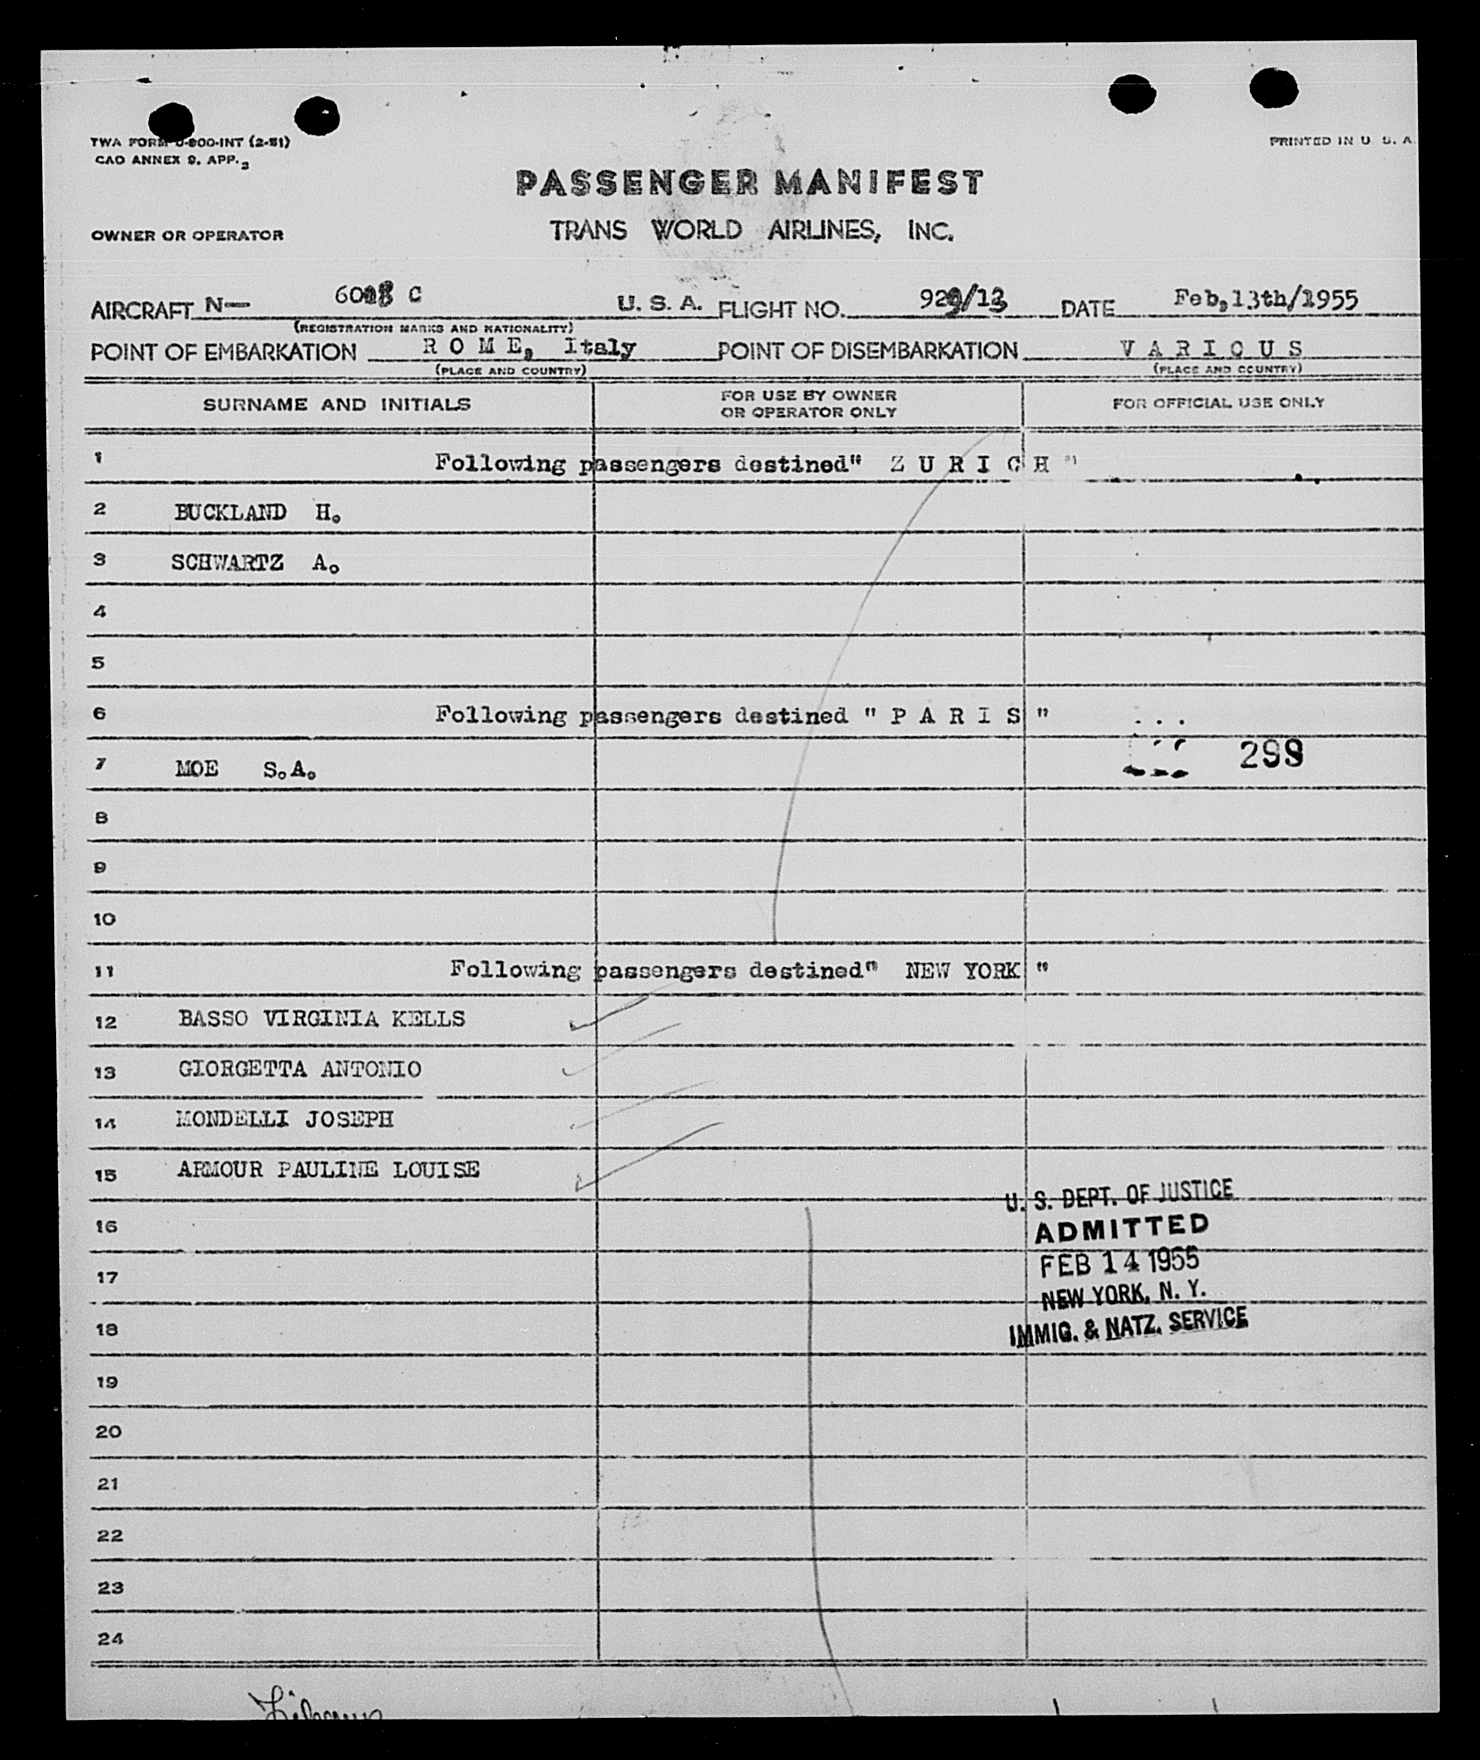 TWA FORM O-800-INT (2-51)
CAO ANNEX 9, APP. 2
PRINTED IN U. S. A.
PASSENGER MANIFEST
OWNER OR OPERATOR
TRANS WORLD AIRLINES, INC.
AIRCRAFT N— C U. S. A. FLIGHT NO. 929/13 DATE Feb,13th/1955
(REGISTRATION MARKS AND NATIONALITY)
POINT OF EMBARKATION R O M E, Italy POINT OF DISEMBARKATION V A R I O U S
(PLACE AND COUNTRY) (PLACE AND COUNTRY)
SURNAME AND INITIALS FOR USE BY OWNER OR OPERATOR ONLY FOR OFFICIAL USE ONLY
1 Following passengers destined" Z U R I C H "
2 BUCKLAND H.
3 SCHWARTZ A.
4
5
6 Following passengers destined " P A R I S "
7 MOE S.A. 299
8
9
10
11 Following passengers destined" NEW YORK "
12 BASSO VIRGINIA KELLS
13 GIORGETTA ANTONIO
14 MONDELLI JOSEPH
15 ARMOUR PAULINE LOUISE
U. S. DEPT. OF JUSTICE
16 ADMITTED
17 FEB 14 1955
NEW YORK, N. Y.
18 IMMIG. & NATZ. SERVICE
19
20
21
22
23
24